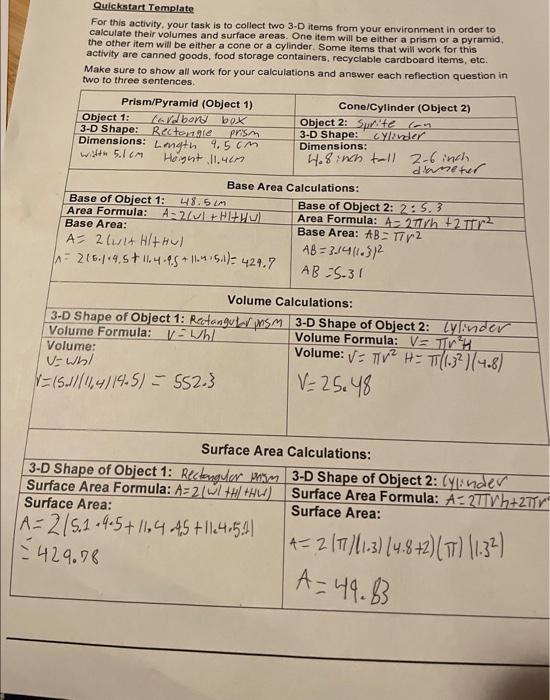 Quickstart Template
For this activity, your task is to collect two 3-D items from your environment in order to
calculate their volumes and surface areas. One item will be either a prism or a pyramid,
the other item will be either a cone or a cylinder. Some items that will work for this
activity are canned goods, food storage containers, recyclable cardboard items, etc.
Make sure to show all work for your calculations and answer each reflection question in
two to three sentences.
Prism/Pyramid (Object 1)
Object 1: Cardbord box
3-D Shape: Rectongle prism
Dimensions: Length 9.5 cm
width 5.1 cm Height 11.4cm
Cone/Cylinder (Object 2)
Object 2: Sprite can
3-D Shape: Cylinder
Dimensions:
4.8 inch tall 2.6 inch
diameter
Base Area Calculations:
Base of Object 1: 48.5 cm
Area Formula: A=2(wl+Hl+HW)
Base Area:
A= 2(wl+Hl+Hw)
A= 2(5.1·9.5+11.4·9.5+11.4·5.1)=429.7
Base of Object 2: 2:5.3
Area Formula: A=2πrh+2πr²
Base Area: AB=πr²
AB=3.14(1.3)²
AB=5.31
Volume Calculations:
3-D Shape of Object 1: Rectangular prism
Volume Formula: V=Whl
Volume:
V=Whl
V=(5.1)(11.4)(9.5) = 552.3
3-D Shape of Object 2: Cylinder
Volume Formula: V=πr²H
Volume: V=πr² H=π(1.3²)(4.8)
V=25.48
Surface Area Calculations:
3-D Shape of Object 1: Rectangular prism
Surface Area Formula: A=2(wl+Hl+HW)
Surface Area:
A=2(5.1·9.5+11.4·9.5+11.4·5.1)
=429.78
3-D Shape of Object 2: Cylinder
Surface Area Formula: A=2πrh+2πr
Surface Area:
A=2(π)(1.3)(4.8+2)(π)(1.3²)
A=49.83